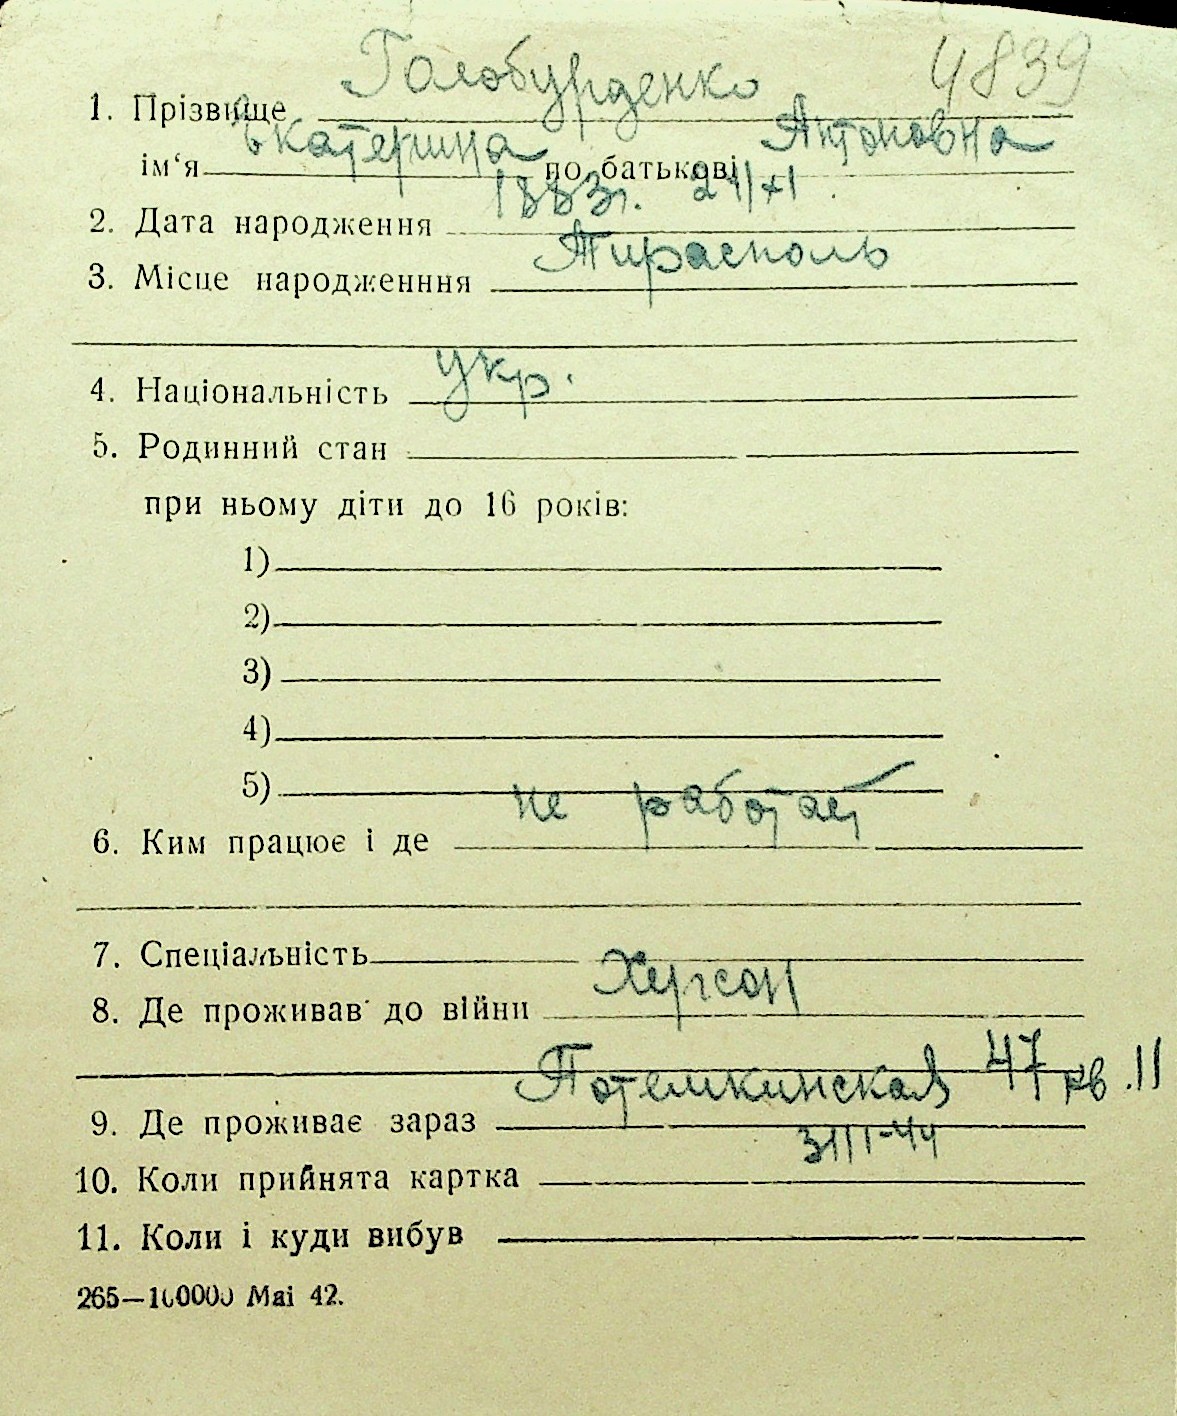 4839
1. Прізвище Голобурденко
ім‘я Екатерина по батькові Антоновна
2. Дата народження 1883г. 24/XI
3. Місце народженння Тирасполь
4. Національність укр.
5. Родинний стан
при ньому діти до 16 років:
1)
2)
3)
4)
5)
6. Ким працює і де не работает
7. Спеціальність
8. Де проживав до війни Херсон
9. Де проживає зараз Потемкинская 47 кв. 11
10. Коли прийнята картка 3/II-44
11. Коли і куди вибув
265—100000 Mai 42.